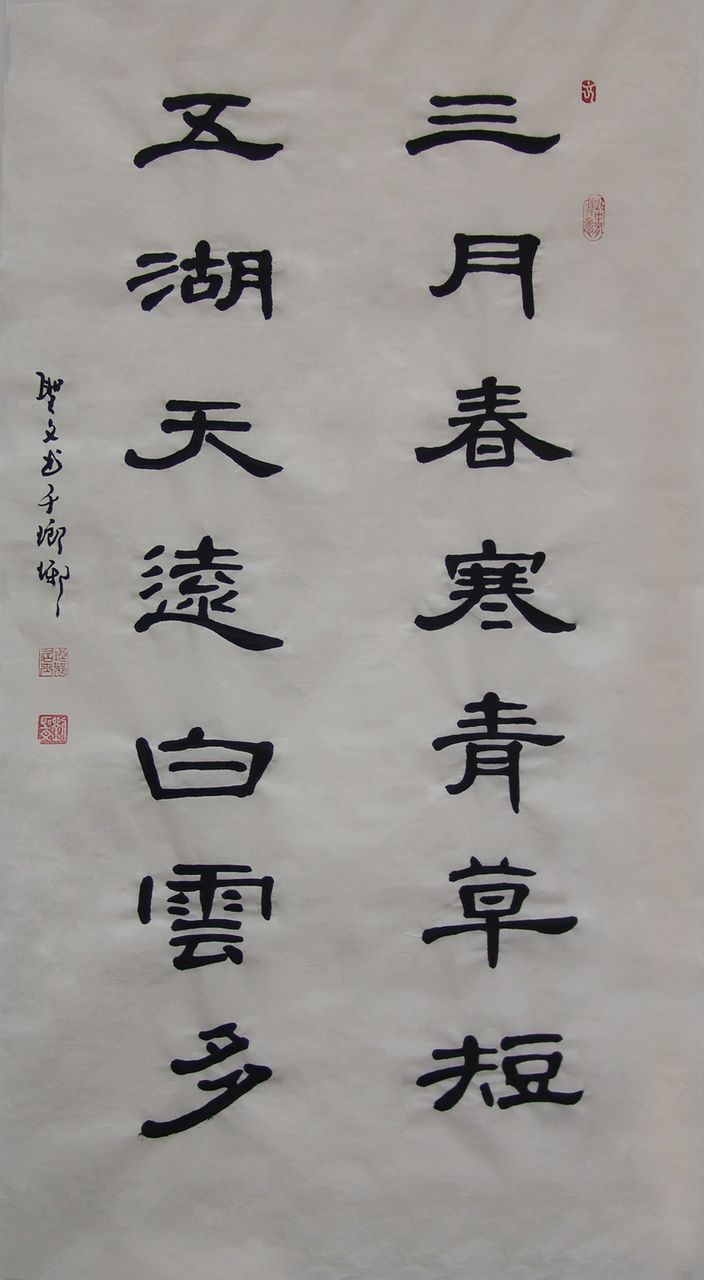 三月春寒青草短
五湖天遠白雲多
聖文书于瑯琊